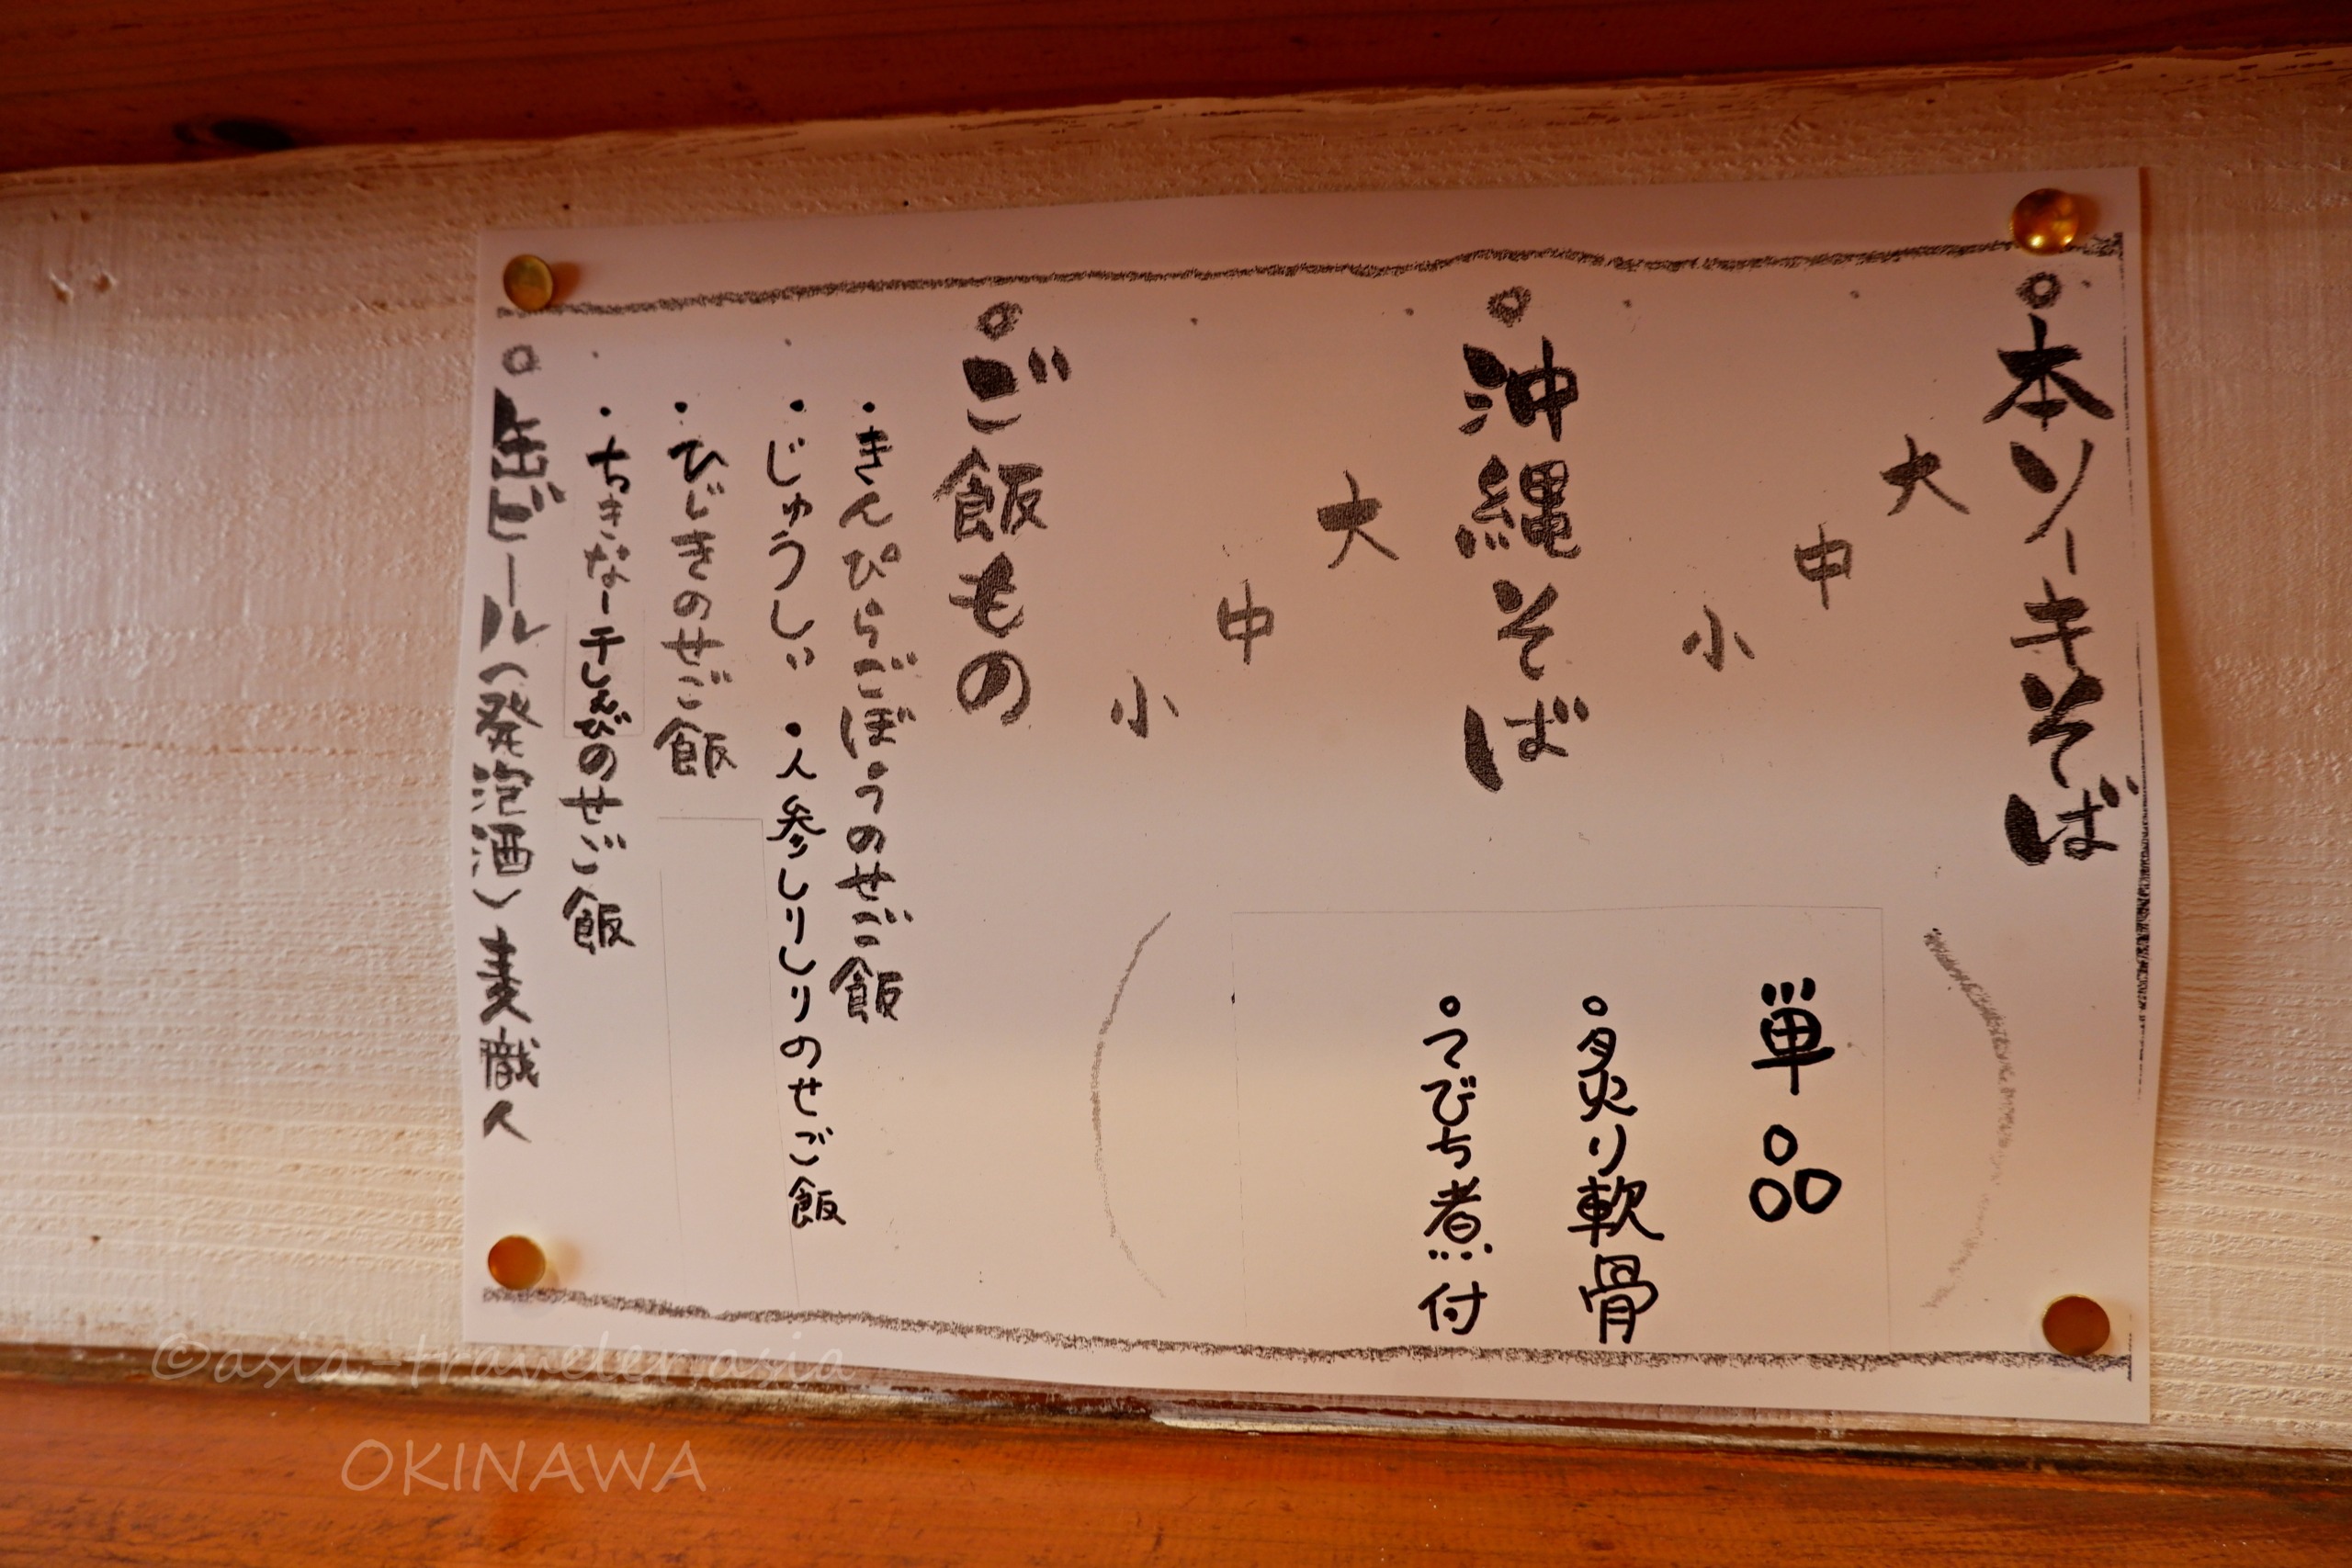 本ソーキそば
大
中
小
沖縄そば
大
中
小
単品
炙り軟骨
てびち煮付
ご飯もの
・きんぴらごぼうのせご飯
・じゅうしぃ ・人参しりしりのせご飯
・ひじきのせご飯
・ちきなー干しえびのせご飯
缶ビール(発泡酒)麦職人
©asia-traveler.asia
OKINAWA